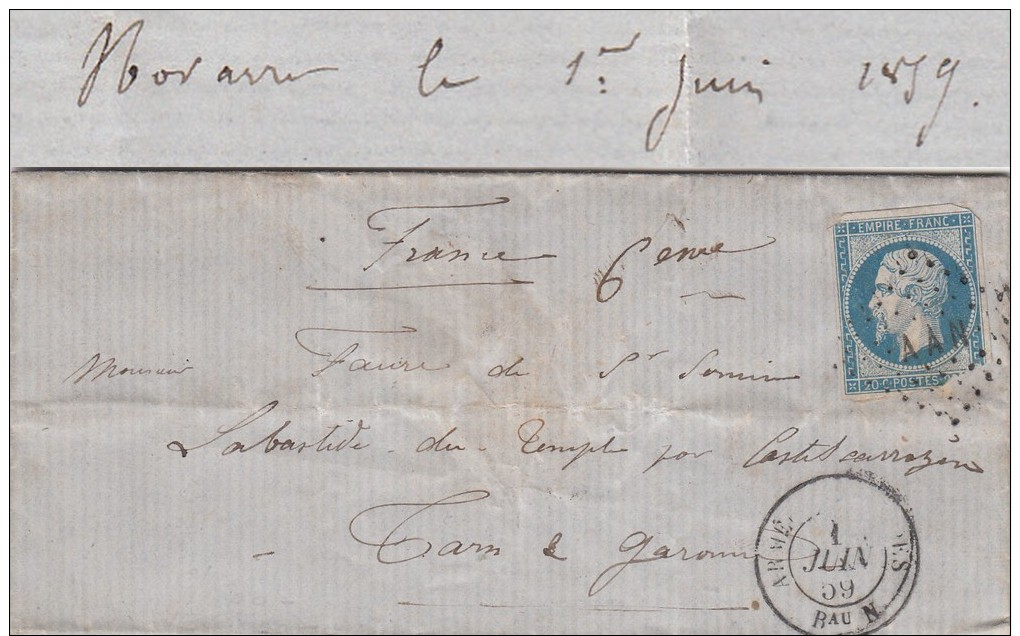 Novarre le 1er Juin 1859.
France 6eme
EMPIRE FRANC
AAN
20 C. POSTES
Monsieur Faure de St
Labastide du Temple par Castelsarrazin
Tarn & Garonne
ARMÉE ES
1
JUIN
59
BAU N